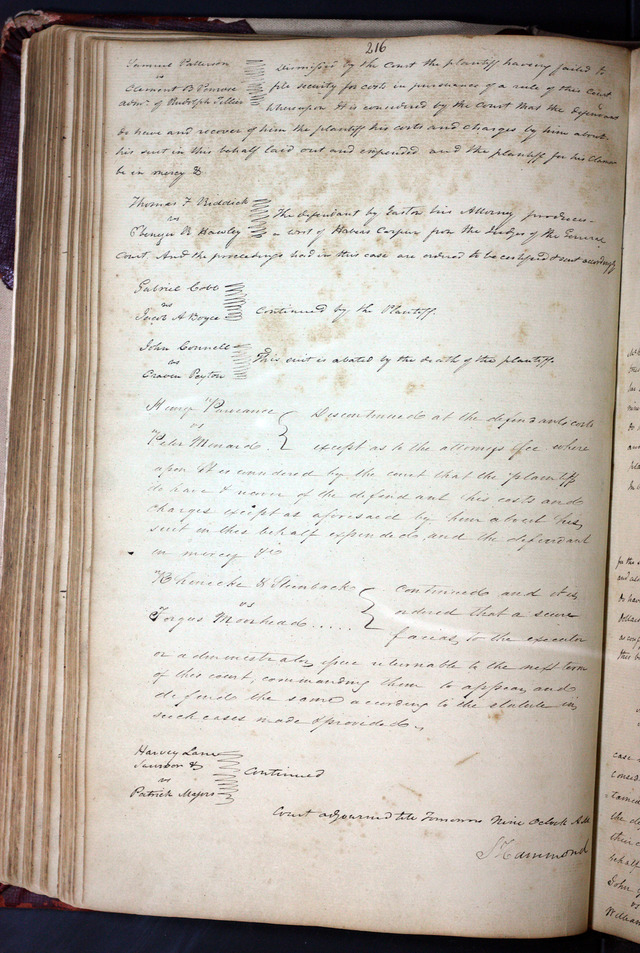 216
Samuel Patterson
vs
Clement B Penrose
admr. of Rudolph Tillier
Dismissed by the Court the plantiff having failed to
file security for costs in pursuance of a rule of this Court
whereupon It is considered by the Court that the defendant
do have and recover of him the plantiff his costs and charges by him about
his suit in this behalf laid out and expended and the plantiff for his Clamor
be in mercy &
Thomas F Riddick
vs
Ebenezer R Hawley
The defendant by Easton his Attorney produces
a writ of Habeas Corpus from the Judges of the General
Court. And the proceedings had in this case are ordered to be certified & sent accordingly
Gabriel Cobb
vs
Jacob A Boyce
Continued by the Plantiff.
John Connell
vs
Craven Peyton
This suit is abated by the death of the plantiff.
Henry Purcance
vs
Peter Menard.
Discontinued at the defendants costs
except as to the attorneys ffee where
upon It is considered by the court that the plantiff
do have & recover of the defendant his costs and
charges except as aforesaid by him about his
suit in this behalf expended and the defendant
in mercy &c
Rheneche & Steinback
vs
Fergus Moorhead.....
continued and it is
ordered that a scire
facias, to the executor
or administrator issue returnable to the next term
of this court, commanding them to appear and
defend the same according to the statute in
such cases made & provided.
Harvey Lane
&
vs
Patrick Majors
Continued
Court adjourned till Tomorrow Nine Oclock A.M
S Hammond
case
the de
their
behalf
John
vs
William